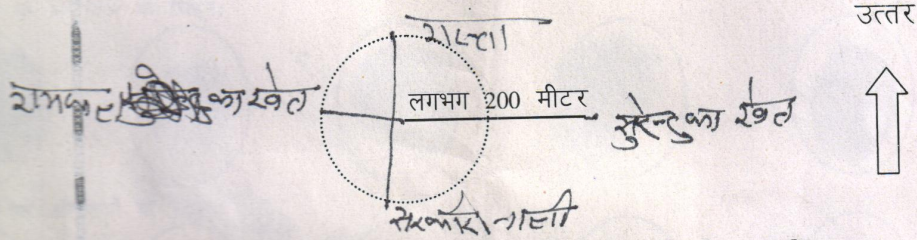 उत्तर
रास्ता
का खेत
लगभग 200 मीटर
सुरेन्द्र का खेत
सरकारी नाली